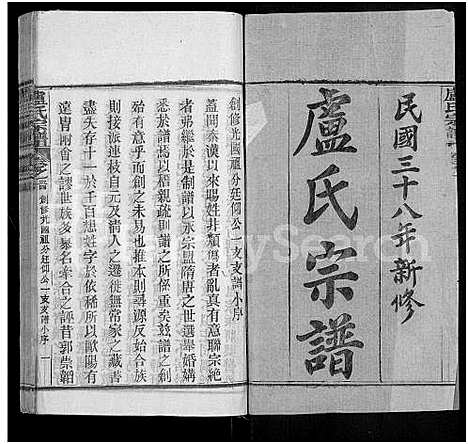 民國三十八年新修
盧氏宗譜
盧氏宗譜
創修光國祖分廷仰公一支支譜小序
蓋聞秦漢以來賜姓非類傷者亂真有意聯宗絕
者弗繼於是制譜以永宗盟隋唐之世選舉婚媾
必於譜焉以稽親疏則譜之所係重矣茲譜之創
始有意乎而創之未易也推本則尋源反始合族
則接派連枝自元及清人之遷徙無常家之藏書
盡失存十一於千百想姓字於依稀所以歐陽有
遠胄兩會之謬世族多冒名牽合之誣昔郭崇韜
盧氏宗譜
創修光國祖分廷仰公一支支譜小序
一